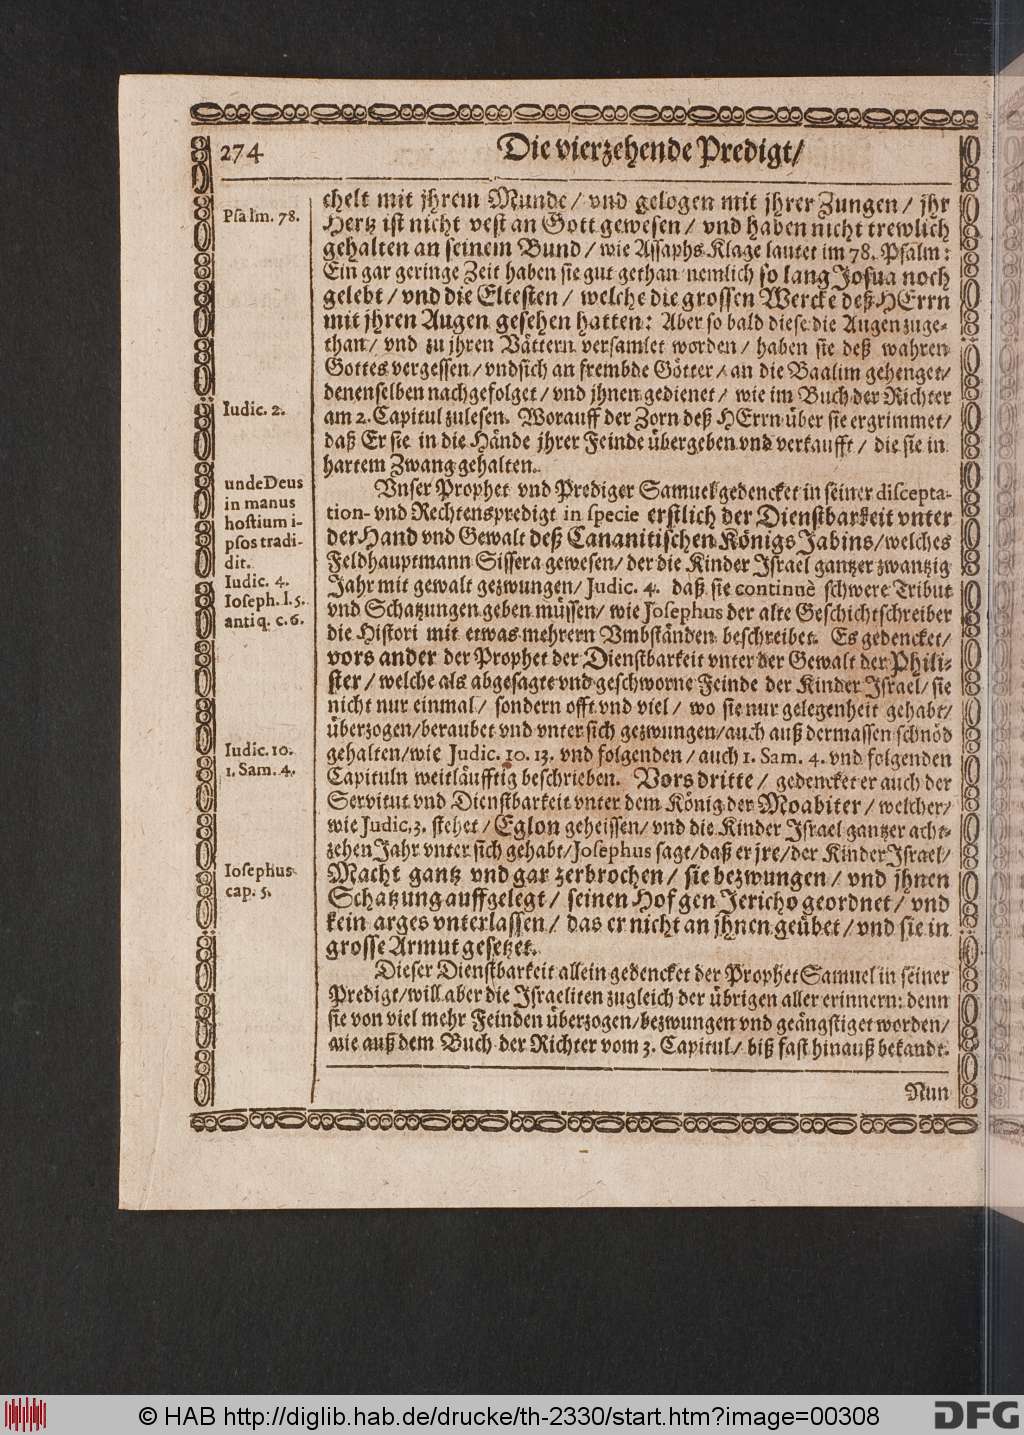 274
Die vierzehende Predigt/
Psalm. 78.
chelt mit jhrem Munde/ vnd gelogen mit jhrer Zungen/ jhr
Hertz ist nicht vest an Gott gewesen/ vnd haben nicht trewlich
gehalten an seinem Bund/ wie Assaphs Klage lautet im 78. Psalm:
Ein gar geringe Zeit haben sie gut gethan nemlich so lang Josua noch
gelebt/ vnd die Eltesten/ welche die grossen Wercke deß HErrn
mit jhren Augen gesehen hatten: Aber so bald diese die Augen zuge-
than/ vnd zu jhren Vättern versamlet worden/ haben sie deß wahren
Gottes vergessen/ vnd sich an frembde Götter/ an die Baalim gehenget/
denenselben nachgefolget/ vnd jhnen gedienet/ wie im Buch der Richter
Iudic. 2.
am 2. Capitul zulesen. Worauff der Zorn deß HErrn über sie ergrimmet/
daß Er sie in die Hände jhrer Feinde übergeben vnd verkaufft/ die sie in
hartem Zwang gehalten.
unde Deus
in manus
hostium i-
psos tradi-
dit.
Iudic. 4.
Ioseph. l. 5.
antiq. c. 6.
Vnser Prophet vnd Prediger Samuel gedencket in seiner discepta-
tion- vnd Rechtenspredigt in specie erstlich der Dienstbarkeit vnter
der Hand vnd Gewalt deß Cananitischen Königs Jabins/ welches
Feldhauptmann Sissera gewesen/ der die Kinder Israel gantzer zwantzig
Jahr mit gewalt gezwungen/ Judic. 4. daß sie continuè schwere Tribut
vnd Schatzungen geben müssen/ wie Josephus der alte Geschichtschreiber
die Histori mit etwas mehrern Vmbständen beschreibet. Es gedencket/
vors ander der Prophet der Dienstbarkeit vnter der Gewalt der Phili-
ster/ welche als abgesagte vnd geschworne Feinde der Kinder Israel/ sie
nicht nur einmal/ sondern offt vnd viel/ wo sie nur gelegenheit gehabt/
überzogen/ beraubet vnd vnter sich gezwungen/ auch auß dermassen schnöd
Iudic. 10.
1. Sam. 4.
gehalten/ wie Judic. 10. 13. vnd folgenden/ auch 1. Sam. 4. vnd folgenden
Capituln weitläufftig beschrieben. Vors dritte/ gedencket er auch der
Servitut vnd Dienstbarkeit vnter dem König der Moabiter/ welcher/
wie Judic. 3. stehet/ Eglon geheissen/ vnd die Kinder Israel gantzer acht-
zehen Jahr vnter sich gehabt/ Josephus sagt/ daß er jre/ der Kinder Israel/
Iosephus
cap. 5.
Macht gantz vnd gar zerbrochen/ sie bezwungen/ vnd jhnen
Schatzung auffgelegt/ seinen Hof gen Jericho geordnet/ vnd
kein arges vnterlassen/ das er nicht an jhnen geübet/ vnd sie in
grosse Armut gesetzet.
Dieser Dienstbarkeit allein gedencket der Prophet Samuel in seiner
Predigt/ will aber die Israeliten zugleich der übrigen aller erinnern: denn
sie von viel mehr Feinden überzogen/ bezwungen vnd geängstiget worden/
wie auß dem Buch der Richter vom 3. Capitul/ biß fast hinauß bekandt.
Nun
© HAB http://diglib.hab.de/drucke/th-2330/start.htm?image=00308
DFG